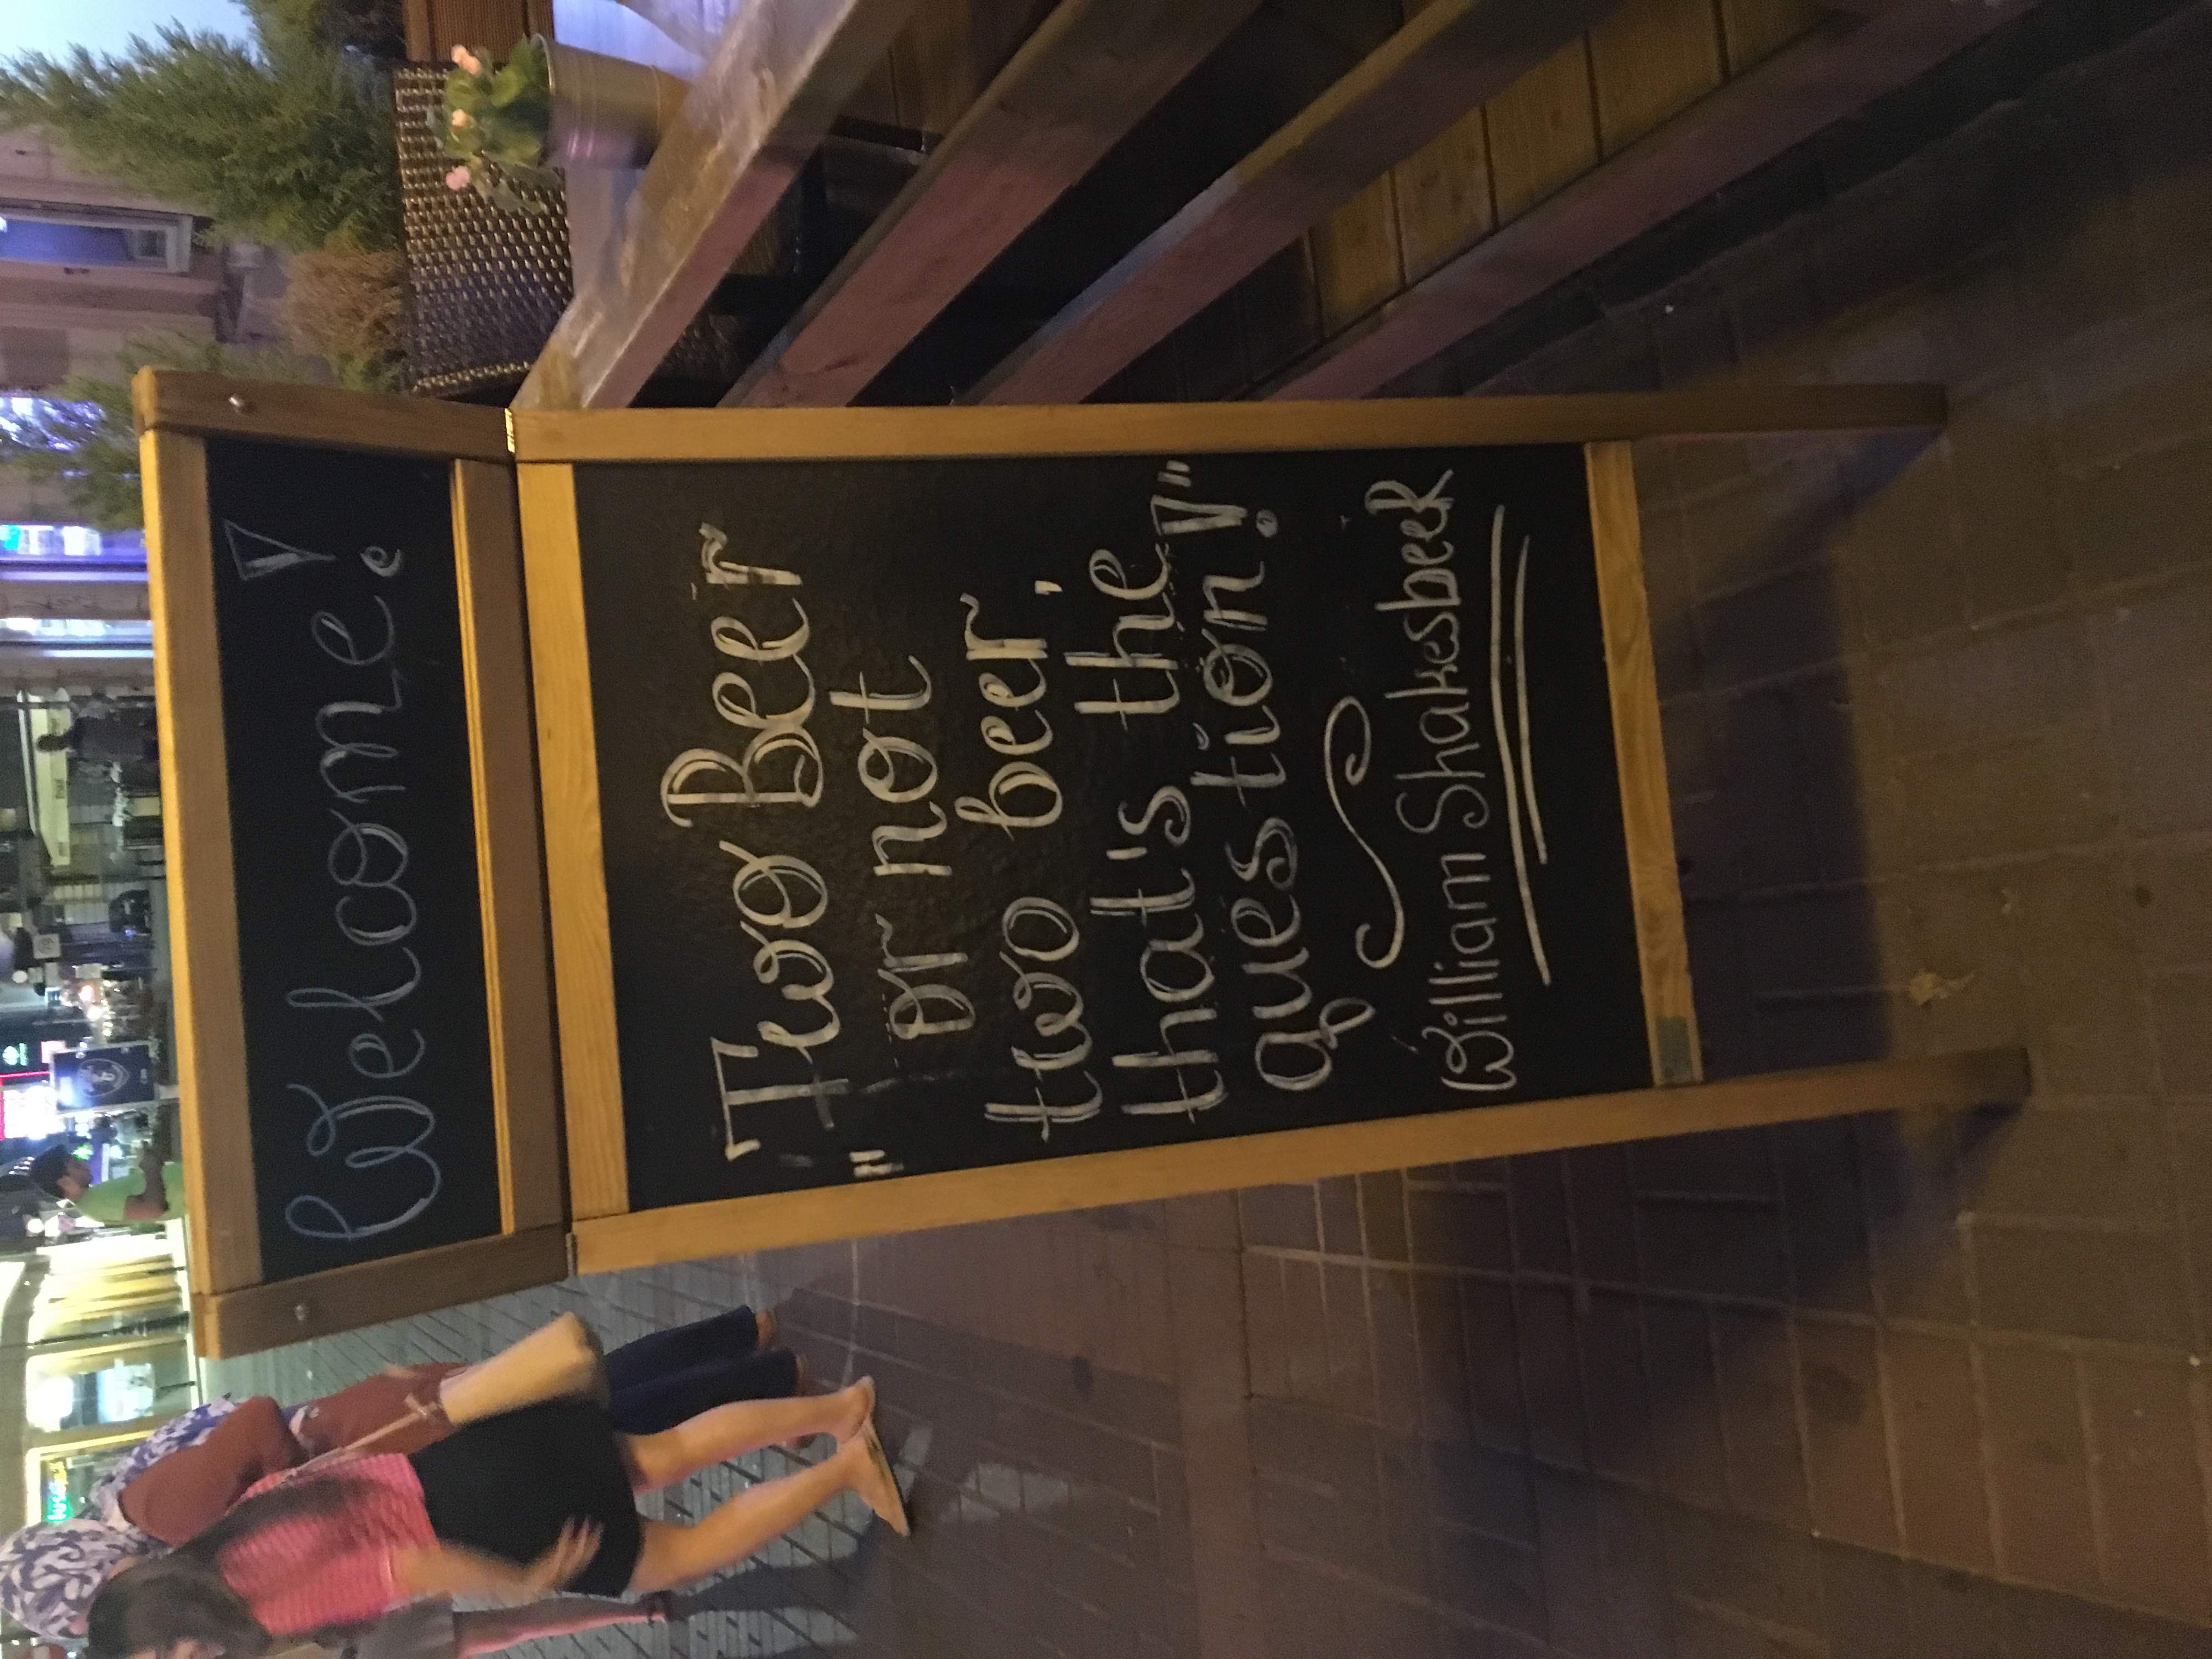 Welcome!
"Two Beer
or not
two beer,
that's the
question!"
William ShakesbeeR